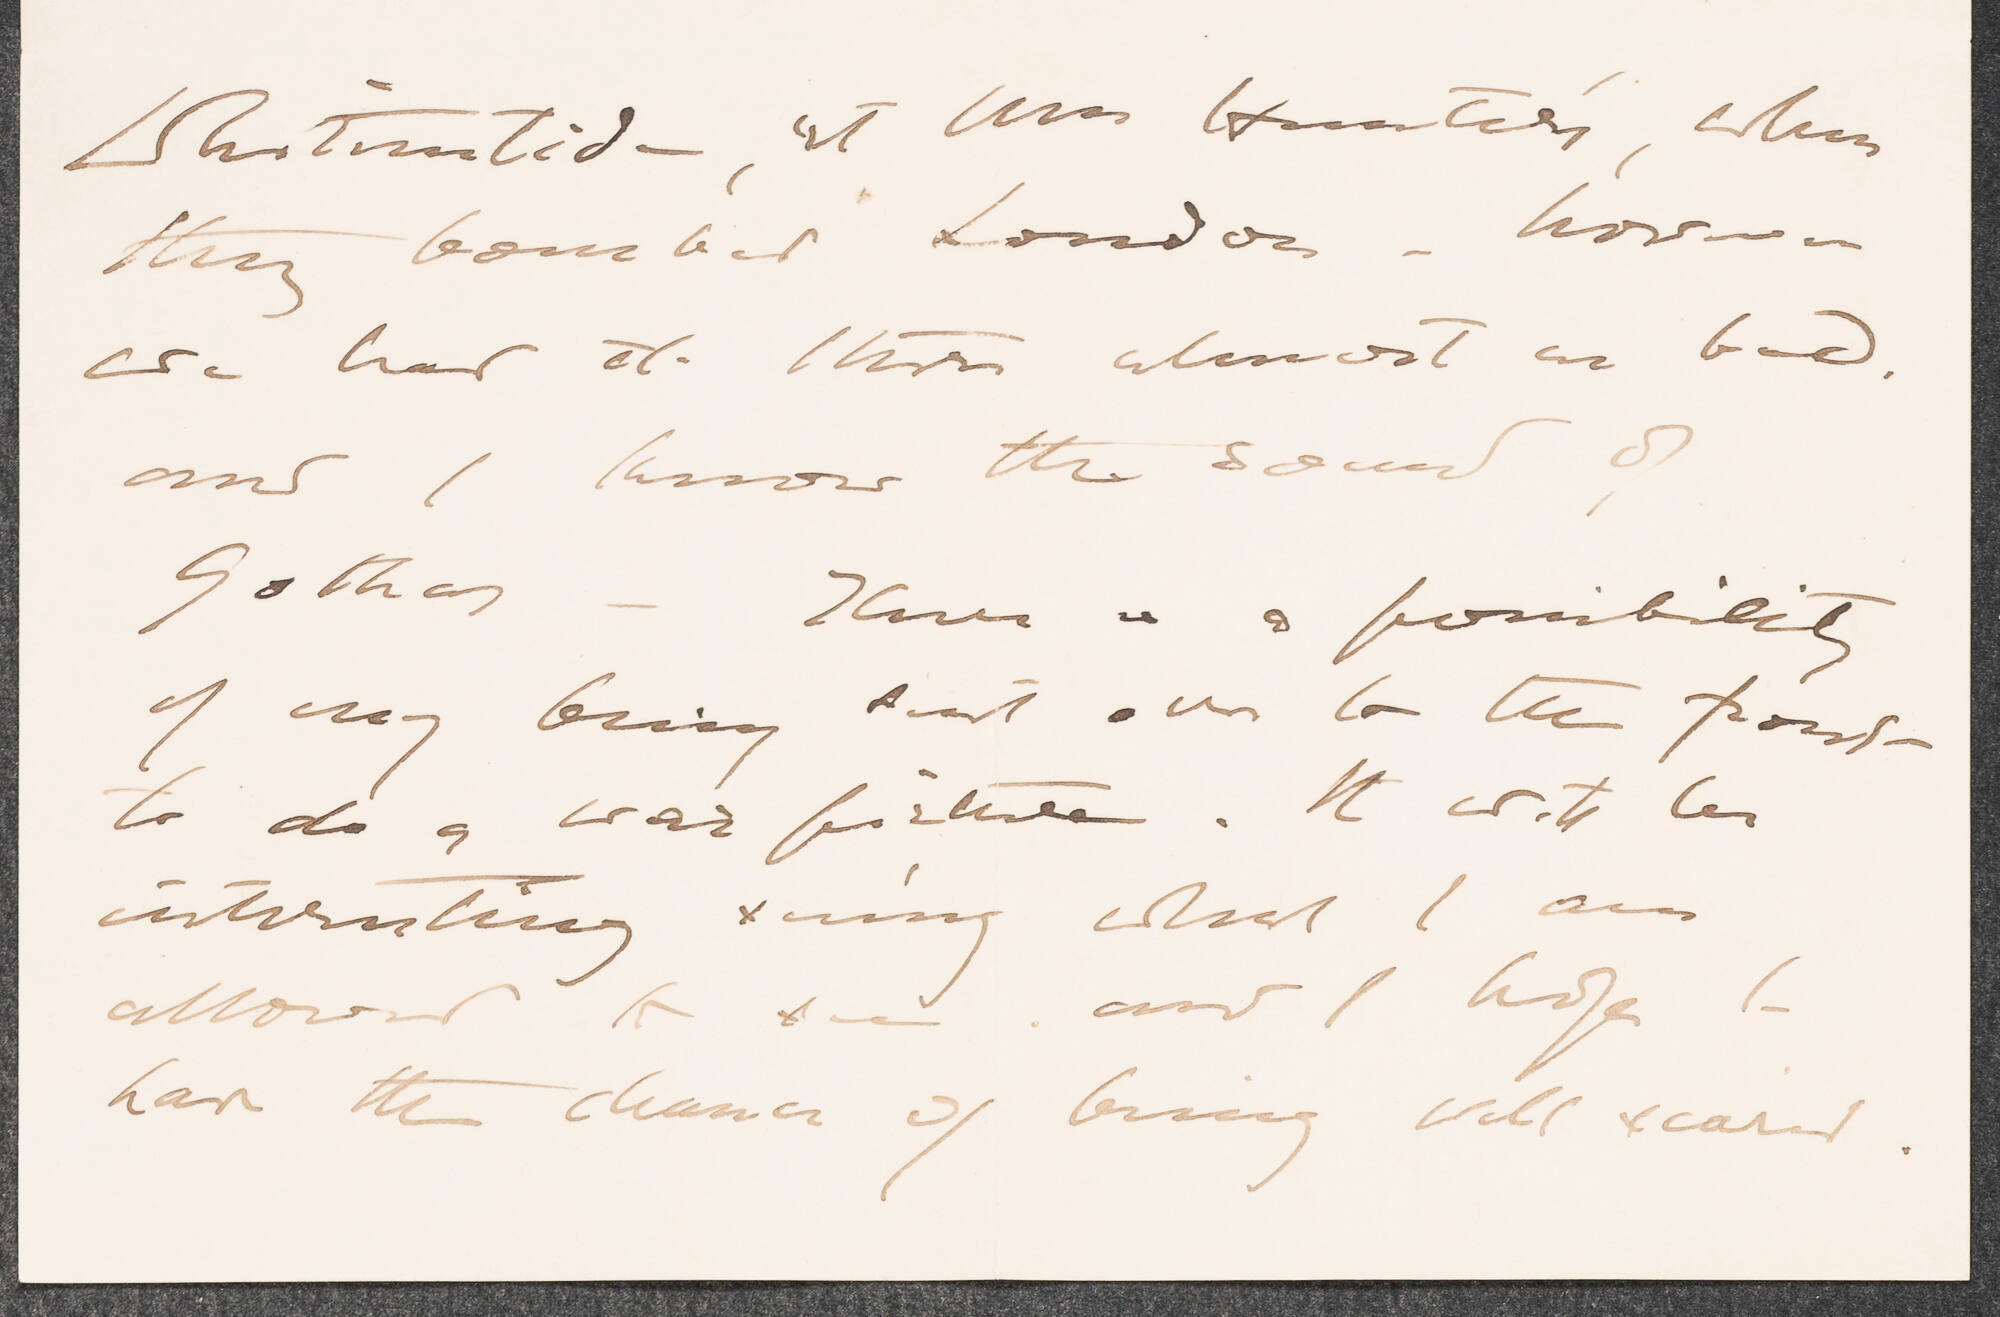 Whitsuntide, at Mrs Hunter's, when
they bombed London - however
we had it there almost as bad.
and I know the sound of
Gothas - There is a possibility
of my being sent over to the front
to do a war picture. It will be
interesting seeing what I am
allowed to see. and I hope to
have the chance of being well scared.